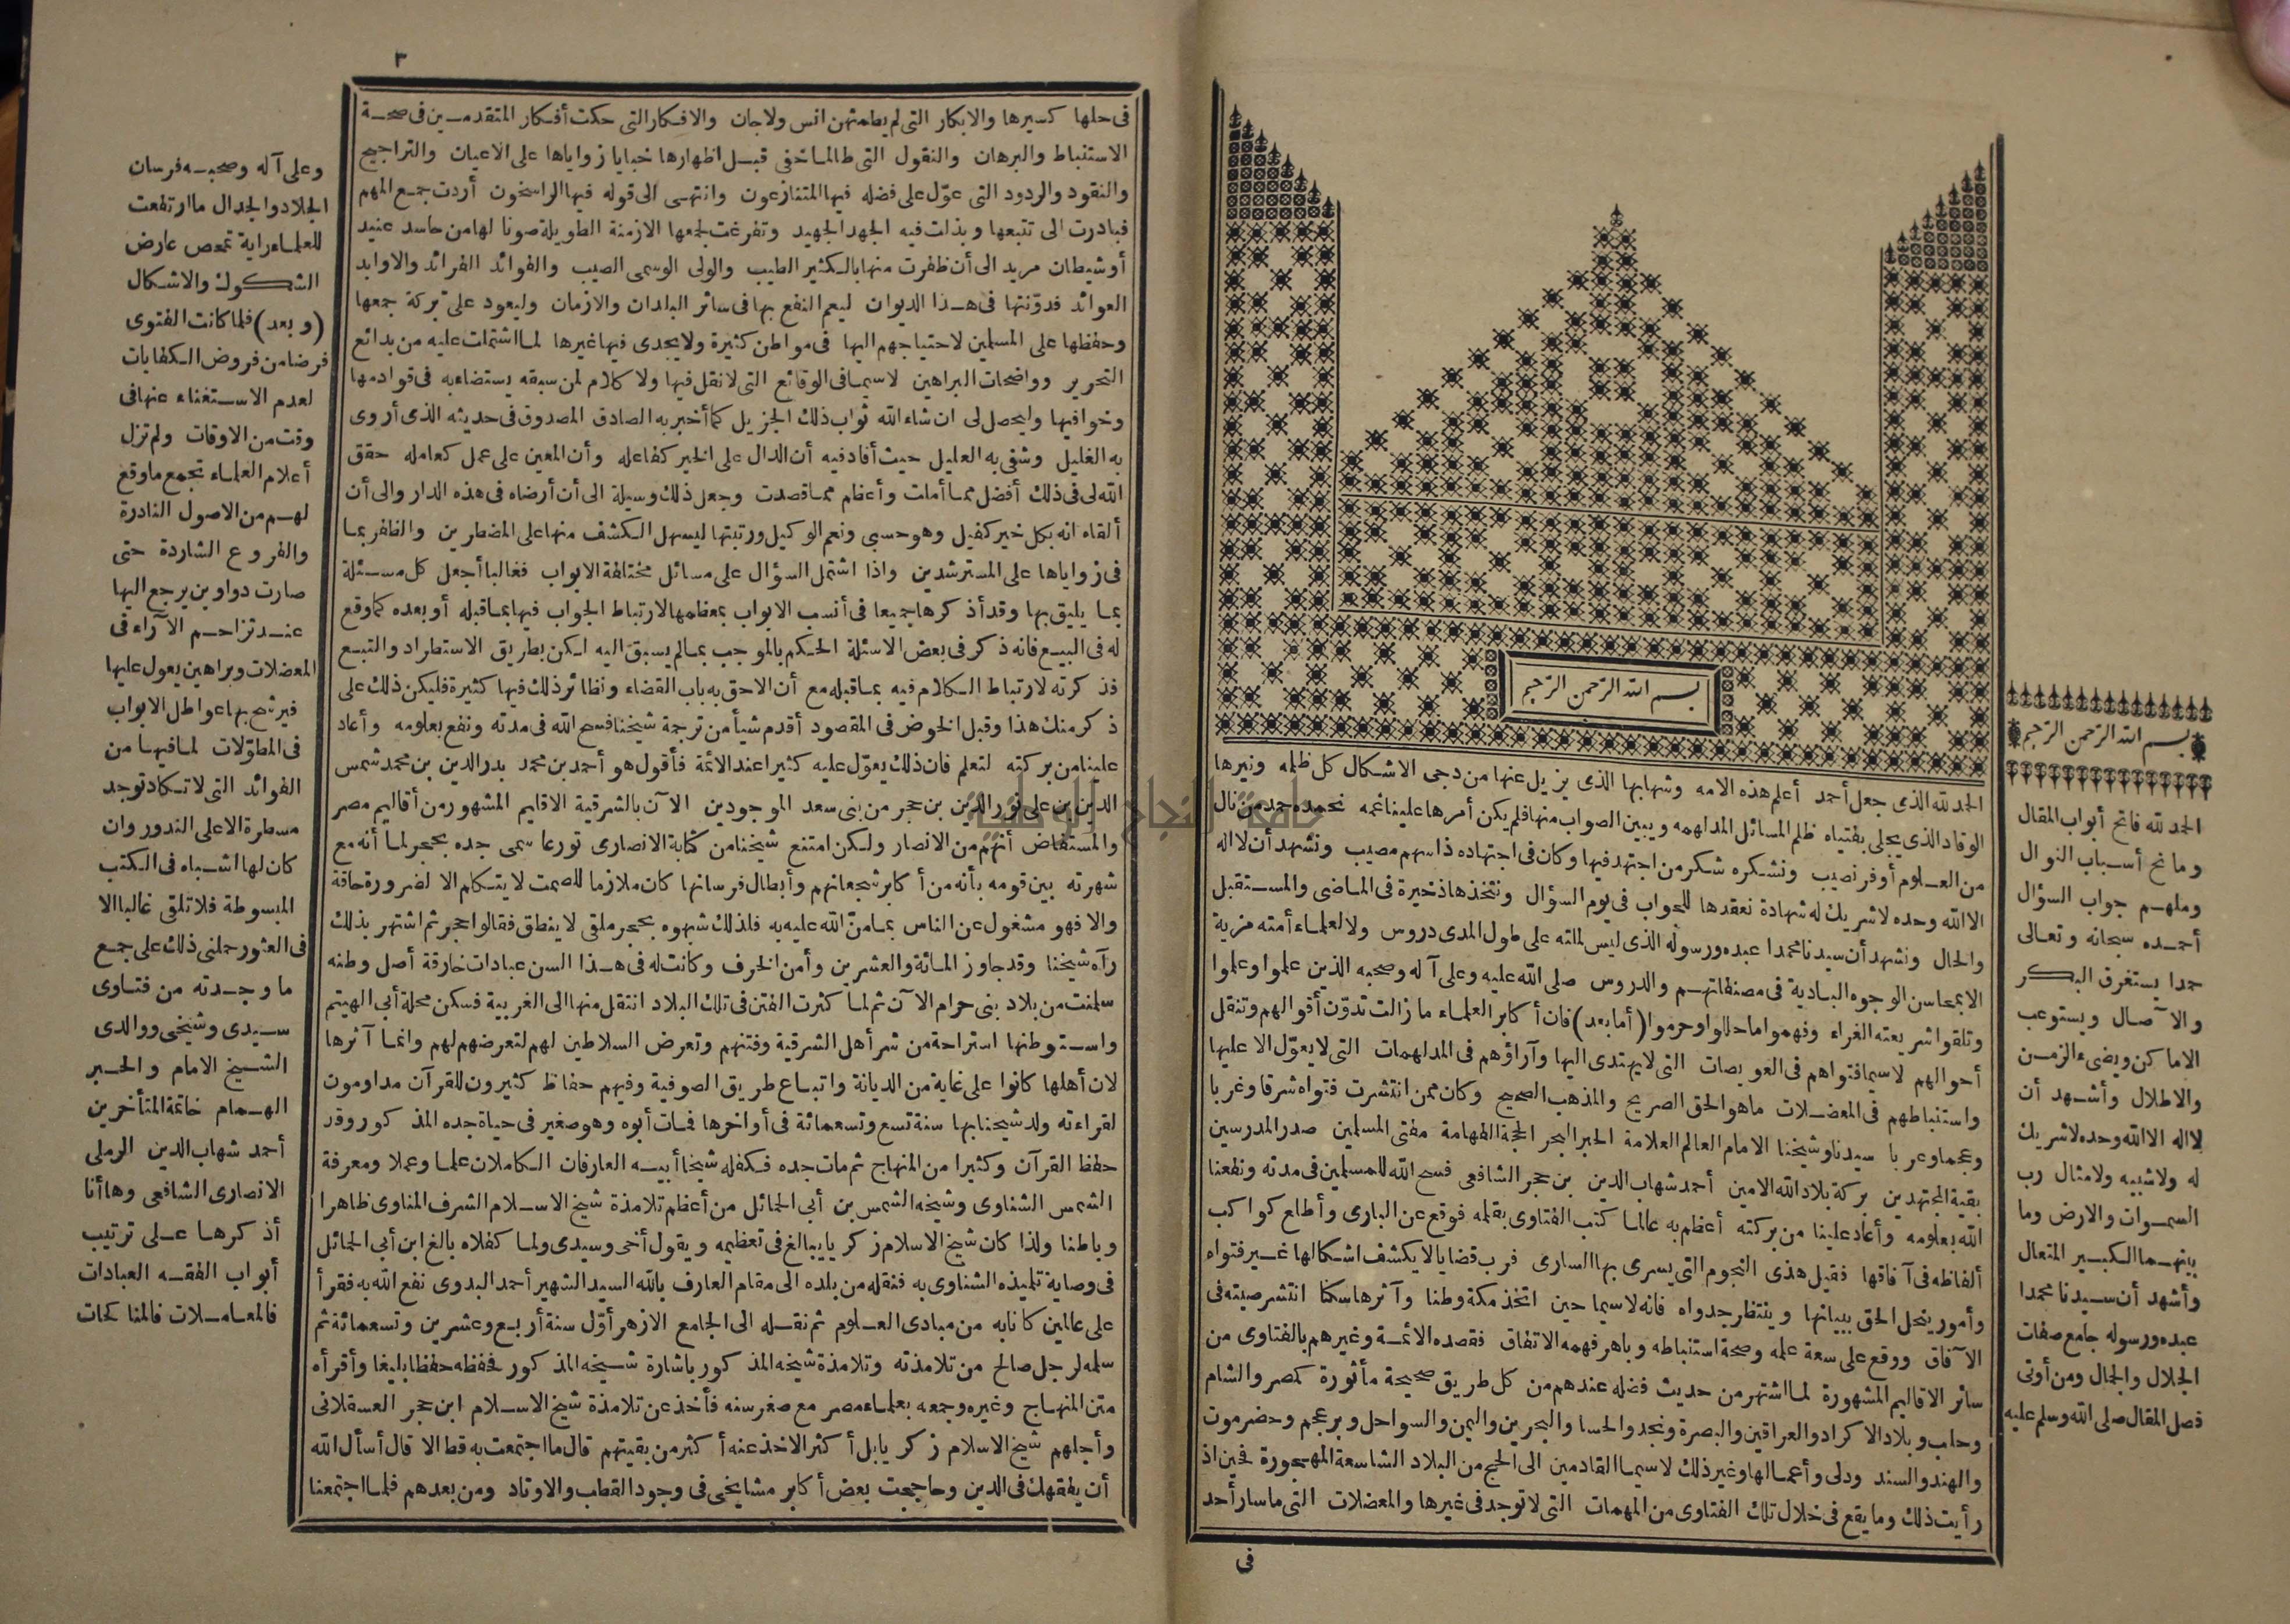 بسم الله الرحمن الرحيم
الحمد لله الذى جعل أحمد أعلم هذه الامه وشهابها الذى يزيل عنها من دجى الاشكال كل ظلمه ونيرها
الوقاد الذى يجلى بفتياه ظلم المسائل المدلهمه ويبين الصواب منها فلم يكن أمرها علينا غمه نحمده حمد من نال
من العلوم أوفر نصيب ونشكره شكر من اجتهد فيها وكان فى اجتهاده ذا سهم مصيب ونشهد أن لا اله
الا الله وحده لا شريك له شهادة نعقدها للجواب فى يوم السؤال ونتخذها ذخيرة فى الماضى والمستقبل
والحال ونشهد أن سيدنا محمدا عبده ورسوله الذى ليس لملته على طول المدى دروس ولا لعلماء أمته مزية
الا بمحاسن الوجوه البادية فى مصنفاتهم والدروس صلى الله عليه وعلى آله وصحبه الذين علموا وعملوا
وتلقوا شريعته الغراء وفهموا ما حللوا وحرموا (أما بعد) فان أكابر العلماء ما زالت تدوّن أقوالهم وتنقل
أحوالهم لاسيما فتواهم فى العويصات التى لا يهتدى اليها وآراؤهم فى المدلهمات التى لا يعوّل الا عليها
واستنباطهم فى المعضلات ما هو الحق الصريح والمذهب الصحيح وكان ممن انتشرت فتواه شرقا وغربا
وعجما وعربا سيدنا وشيخنا الامام العالم العلامة الحبر البحر الحجة الفهامة مفتى المسلمين صدر المدرسين
بقية المجتهدين بركة بلاد الله الامين أحمد شهاب الدين بن حجر الشافعى فسح الله للمسلمين فى مدته ونفعنا
الله بعلومه وأعاد علينا من بركته أعظم به عالما كتب الفتاوى بقلمه فوقع عن البارى وأطلع كواكب
ألفاظه فى آفاقها فقيل هذى النجوم التى يسرى بها السارى فرب قضايا لا يكشف اشكالها غير فتواه
وأمور ينحل الحق ببيانها وينتظر جدواه فانه لاسيما حين اتخذ مكة وطنا وآثرها سكنا انتشر صيته فى
الآفاق ووقع على سعة علمه وصحة استنباطه وباهر فهمه الاتفاق فقصده الائمة وغيرهم بالفتاوى من
سائر الاقاليم المشهورة لما اشتهر من حديث فضله عندهم من كل طريق صحيحة مأثورة كمصر والشام
وحلب وبلاد الاكراد والعراقين والبصرة ونجد والحسا والبحرين واليمن والسواحل وبر عجم وحضرموت
والهند والسند ودلى وأعمالها وغير ذلك لاسيما القادمين الى الحج من البلاد الشاسعة المهجورة فحين اذ
رأيت ذلك وما يقع فى خلال تلك الفتاوى من المهمات التى لا توجد فى غيرها والمعضلات التى ما سار أحد
فى
بسم الله الرحمن الرحيم
الحمد لله فاتح أبواب المقال
ومانح أسباب النوال
وملهم جواب السؤال
أحمده سبحانه وتعالى
حمدا يستغرق البكر
والآصال ويستوعب
الاماكن ويضىء الزمن
والاطلال وأشهد أن
لا اله الا الله وحده لا شريك
له ولا شبيه ولا مثال رب
السموات والارض وما
بينهما الكبير المتعال
وأشهد أن سيدنا محمدا
عبده ورسوله جامع صفات
الجلال والجمال ومن أوتى
فصل المقال صلى الله وسلم عليه
٣
فى حلها كسيرها والابكار التى لم يطمثهن انس ولا جان والافكار التى حكت أفكار المتقدمين فى صحة
الاستنباط والبرهان والنقول التى طالما خفى قبل اظهارها خبايا زواياها على الاعيان والتراجيح
والنقود والردود التى عوّل على فضله فيها المتنازعون وانتهى الى قوله فيها الراسخون أردت جمع المهم
فبادرت الى تتبعها وبذلت فيه الجهد الجهيد وتفرغت لجمعها الازمنة الطويلة صونا لها من حاسد عنيد
أو شيطان مريد الى أن ظفرت منها بالكثير الطيب والولى الوسمى الصيب والفوائد الفرائد والاوابد
العوائد فدوّنتها فى هذا الديوان ليعم النفع بها فى سائر البلدان والازمان وليعود علىّ بركة جمعها
وحفظها على المسلمين لاحتياجهم اليها فى مواطن كثيرة ولا يجدى فيها غيرها لما اشتملت عليه من بدائع
التحرير وواضحات البراهين لاسيما فى الوقائع التى لا نقل فيها ولا كلام لمن سبقه يستضاء به فى قوادمها
وخوافيها وليحصل لى ان شاء الله ثواب ذلك الجزيل كما أخبر به الصادق المصدوق فى حديثه الذى أروى
به الغليل وشفى به العليل حيث أفاد فيه أن الدال على الخير كفاعله وأن المعين على عمل كعامله حقق
الله لى فى ذلك أفضل مما أملت وأعظم مما قصدت وجعل ذلك وسيلة الى أن أرضاه فى هذه الدار والى أن
ألقاه انه بكل خير كفيل وهو حسبى ونعم الوكيل ورتبتها ليسهل الكشف منها على المضطرين والظفر بما
فى زواياها على المسترشدين واذا اشتمل السؤال على مسائل مختلفة الابواب فغالبا أجعل كل مسئلة
بما يليق بها وقد أذكرها جميعا فى أنسب الابواب بمعظمها لارتباط الجواب فيها بما قبله أو بعده كما وقع
له فى البيع فانه ذكر فى بعض الاسئلة الحكم بالموجب بما لم يسبق اليه لكن بطريق الاستطراد والتبع
فذكرته لارتباط الكلام فيه بما قبله مع أن الاحق به باب القضاء ونظائر ذلك فيها كثيرة فليكن ذلك على
ذكر منك هذا وقبل الخوض فى المقصود أقدم شيأ من ترجمة شيخنا فسح الله فى مدته ونفع بعلومه وأعاد
علينا من بركته لتعلم فان ذلك يعوّل عليه كثيرا عند الائمة فأقول هو أحمد بن محمد بدر الدين بن محمد شمس
الدين بن على نور الدين بن حجر من بنى سعد الموجودين الآن بالشرقية الاقليم المشهور من أقاليم مصر
والمستفاض أنهم من الانصار ولكن امتنع شيخنا من كتابة الانصارى تورعا سمى جده بحجر لما أنه مع
شهرته بين قومه بأنه من أكابر شجعانهم وأبطال فرسانها كان ملازما للصمت لا يتكلم الا لضرورة حاقة
والا فهو مشغول عن الناس بما منّ الله عليه به فلذلك شبهوه بحجر ملقى لا ينطق فقالوا حجر ثم اشتهر بذلك
رآه شيخنا وقد جاوز المائة والعشرين وأمن الخرف وكانت له فى هذا السن عبادات خارقة أصل وطنه
سلمنت من بلاد بنى حرام الآن ثم لما كثرت الفتن فى تلك البلاد انتقل منها الى الغربية فسكن محلة أبى الهيتم
واستوطنها استراحة من شر أهل الشرقية وفتنهم وتعرض السلاطين لهم لتعرضهم لهم وانما آثرها
لان أهلها كانوا على غاية من الديانة واتباع طريق الصوفية وفيهم حفاظ كثيرون للقرآن مداومون
لقراءته ولد شيخنا بها سنة تسع وتسعمائة فى أواخرها فمات أبوه وهو صغير فى حياة جده المذكور وقد
حفظ القرآن وكثيرا من المنهاج ثم مات جده فكفله شيخا أبيه العارفان الكاملان علما وعملا ومعرفة
الشمس الشناوى وشيخه الشمس بن أبى الحمائل من أعظم تلامذة شيخ الاسلام الشرف المناوى ظاهرا
وباطنا ولذا كان شيخ الاسلام زكريا يبالغ فى تعظيمه ويقول أخى وسيدى ولما كفلاه بالغ ابن أبى الحمائل
فى وصاية تلميذه الشناوى به فنقله من بلده الى مقام العارف بالله السيد الشهير أحمد البدوى نفع الله به فقرأ
على عالمين كانا به من مبادى العلوم ثم نقله الى الجامع الازهر أوّل سنة أربع وعشرين وتسعمائة ثم
سلمه لرجل صالح من تلامذته وتلامذة شيخه المذكور باشارة شيخه المذكور فحفظه حفظا بليغا وأقرأه
متن المنهاج وغيره وجمعه بعلماء مصر مع صغر سنه فأخذ عن تلامذة شيخ الاسلام ابن حجر العسقلانى
وأجلهم شيخ الاسلام زكريا بل أكثر الاخذ عنه أكثر من بقيتهم قال ما اجتمعت به قط الا قال أسأل الله
أن يفقهك فى الدين وحاججت بعض أكابر مشايخى فى وجود القطب والاوتاد ومن بعدهم فلما اجتمعنا
وعلى آله وصحبه فرسان
الجلاد والجدال ما ارتفعت
للعلماء راية تمحص عارض
الشكوك والاشكال
(وبعد) فلما كانت الفتوى
فرضا من فروض الكفايات
لعدم الاستغناء عنها فى
وقت من الاوقات ولم تزل
أعلام العلماء تجمع ما وقع
لهم من الاصول النادرة
والفروع الشاردة حتى
صارت دواوين يرجع اليها
عند تزاحم الآراء فى
المعضلات وبراهين يعول عليها
فيرشح بها عواطل الابواب
فى المطوّلات لما فيها من
الفوائد التى لا تكاد توجد
مسطرة الا على الندور وان
كان لها اشباه فى الكتب
المبسوطة فلا تلقى غالبا الا
فى العثور حملنى ذلك على جمع
ما وجدته من فتاوى
سيدى وشيخى ووالدى
الشيخ الامام والحبر
الهمام خاتمة المتأخرين
أحمد شهاب الدين الرملى
الانصارى الشافعى وها أنا
أذكرها على ترتيب
أبواب الفقه العبادات
فالمعاملات فالمناكحات